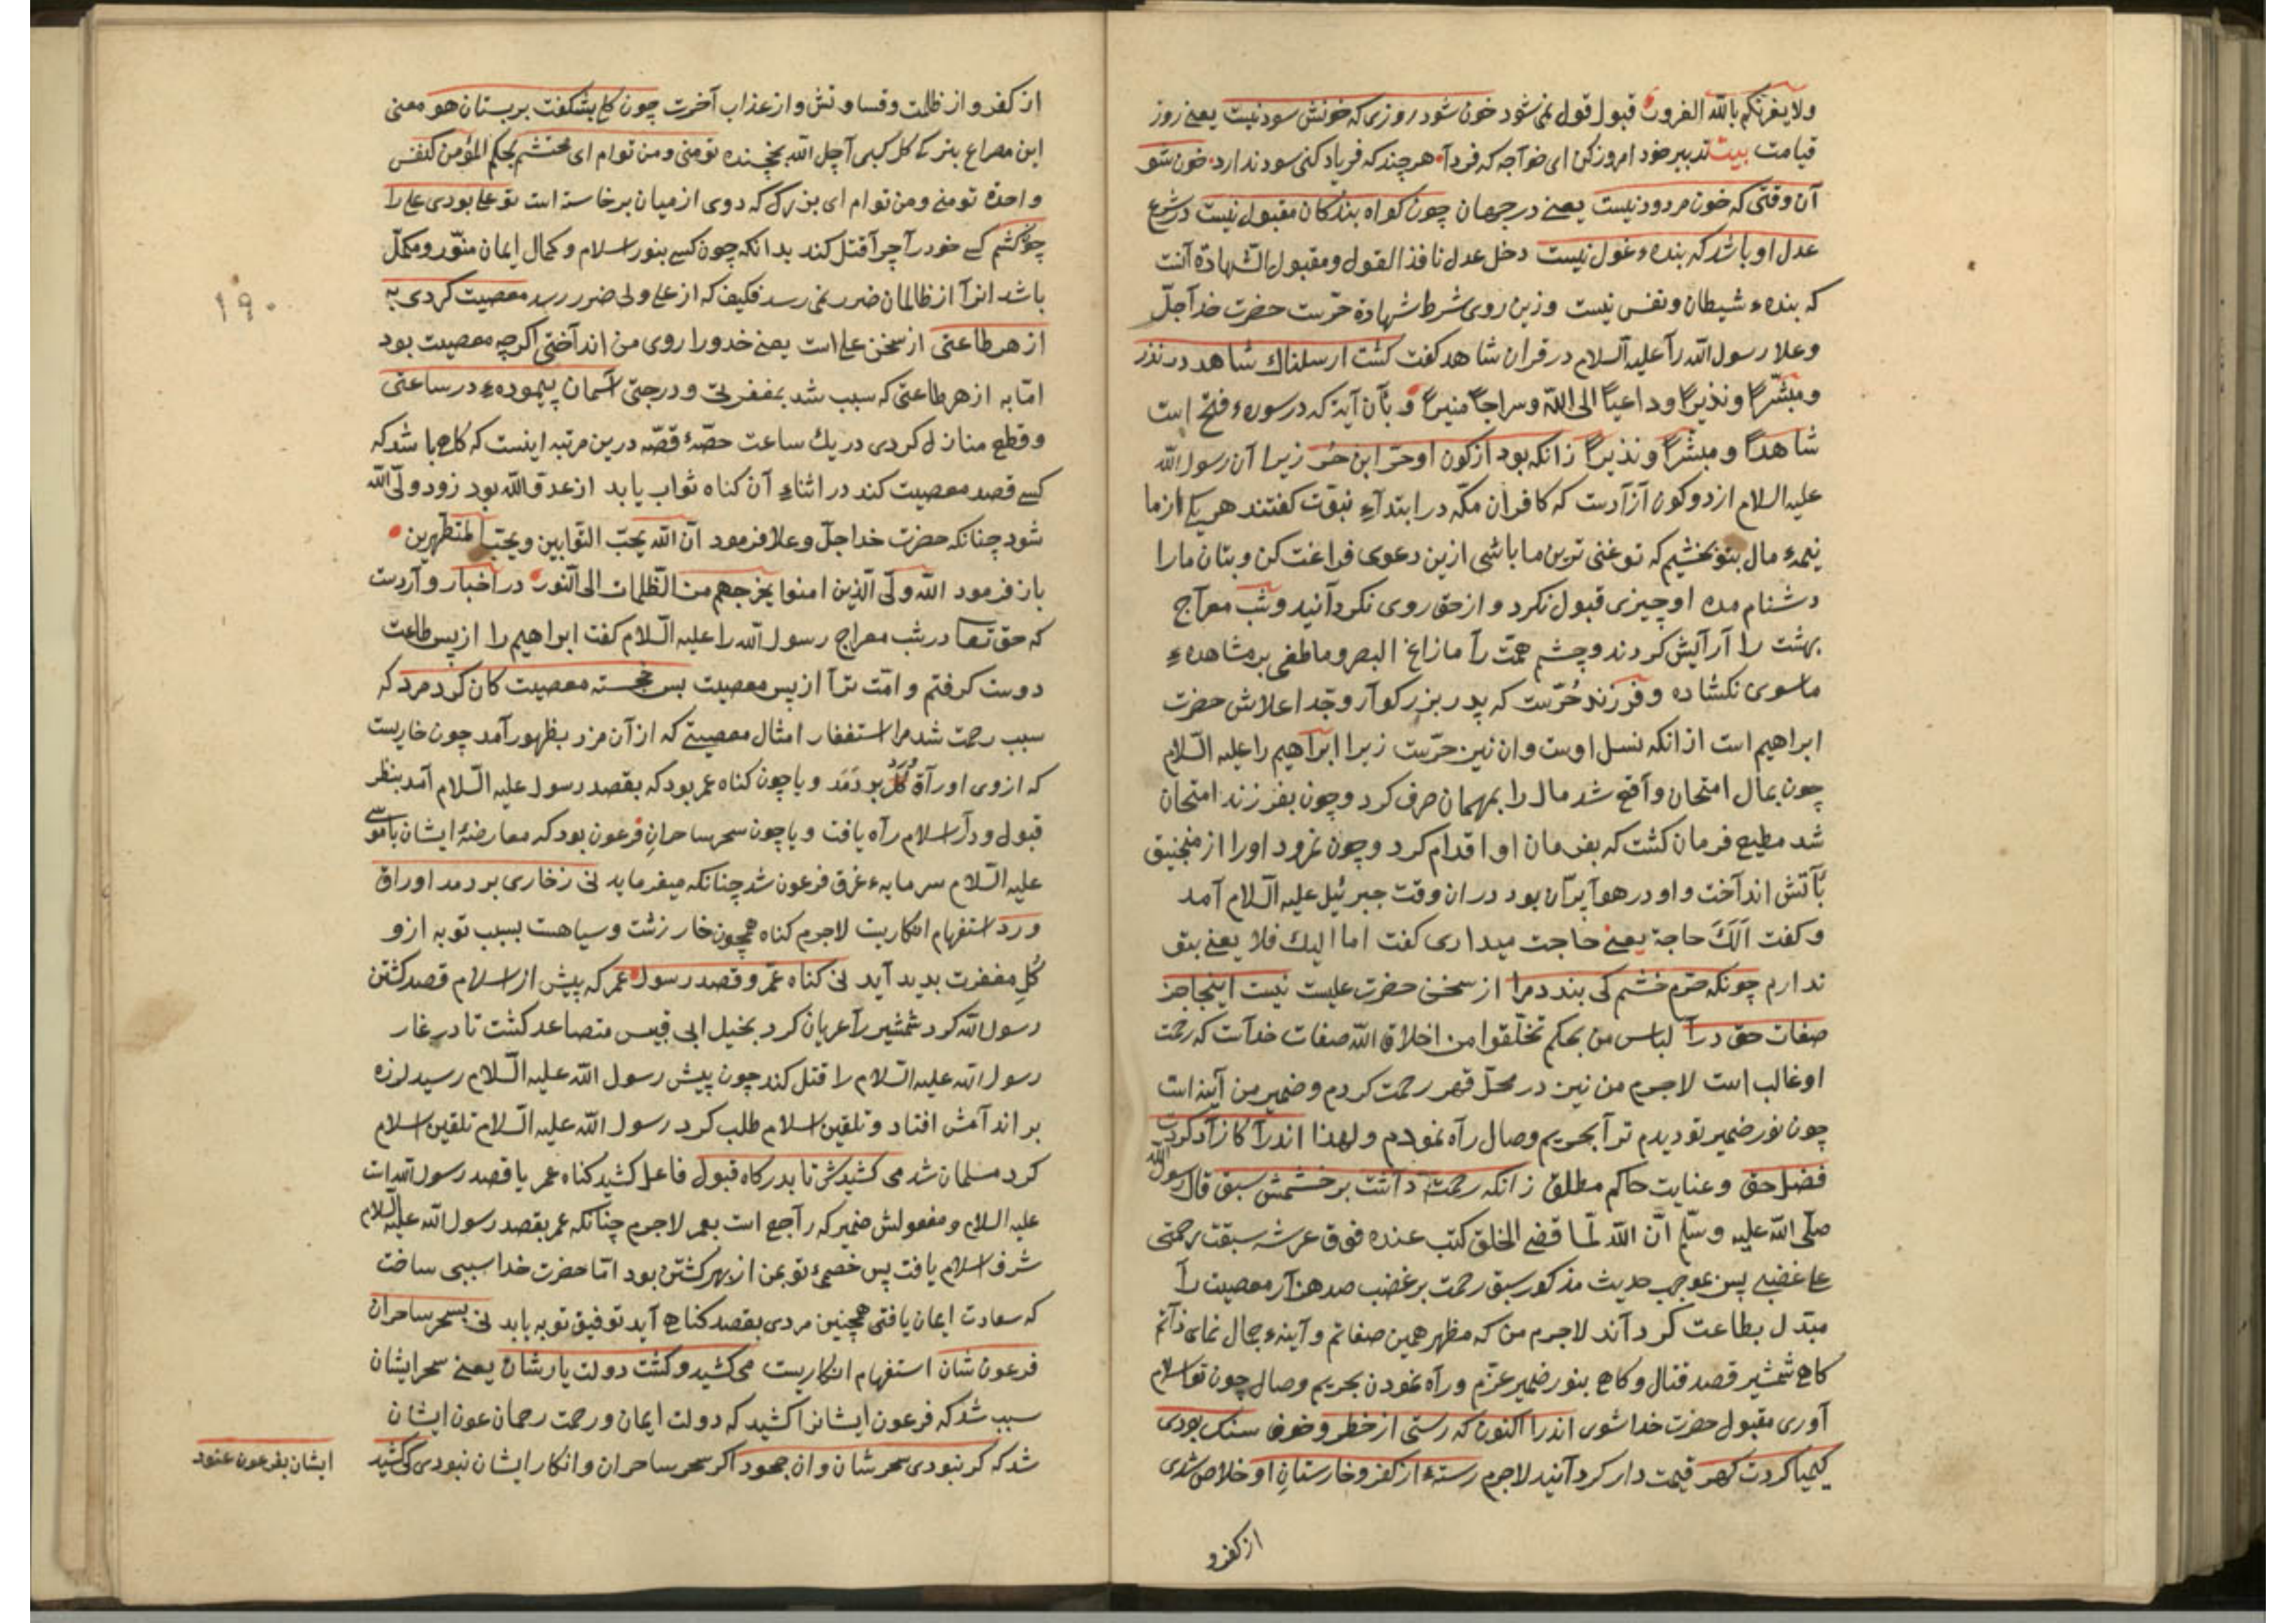 ولا یغرنکم بالله الغرور قبول قول نمی شود خون شود روزی که خونش سود نیست یعنی روز
قیامت بیت تدبیر خود امروز کن ای خواجه که فردا هر چند که فریاد کنی سود ندارد خون شو
آن وقتی که خون مردود نیست یعنی در جهان چون کواه بندکان مقبول نیست در شرع
عدل او باشد که بنده غول نیست دخل عدل نافذ القول و مقبول الشهادة آنست
که بندهء شیطان و نفس نیست و زین روی شرط شهادة حرّیت حضرت خدا جلّ
وعلا رسول الله را علیه السلام در قران شاهد کفت کشت ارسلناک شاهد در نذر
ومبشّرا ونذیرا وداعیا الی الله وسراجا منیرا و بآن آیة که در سورهء فتح است
شاهدا ومبشرا ونذیرا زانکه بود از کون او حرّ ابن حُر زیرا آن رسول الله
علیه السلام از دو کون آزادست که کافران مکّه در ابتداء نبوّت کفتند هر یکی از ما
نیمهء مال بتو بخشیم که تو غنی ترین ما باشی ازین دعوی فراغت کن و بتان ما را
دشنام مده او چیزی قبول نکرد و از حق روی نکردانید و شب معراج
بهشت را آرایش کردند و چشم همّت را ما زاغ البصر وما طغی بر مشاهدهء
ما سوی نکشاده و فرزند حُرّست که پدر بزرکوار و جدّ اعلاش حضرت
ابراهیم است از انکه نسل اوست وان نیز حرّست زیرا ابراهیم را علیه السّلام
چون بمال امتحان واقع شد مال را بمهمان صرف کرد و چون بفرزند امتحان
شد مطیع فرمان کشت که بفرمان او اقدام کرد و چون نمرود اورا از منجنیق
بآتش انداخت و او در هوا پرّان بود دران وقت جبرئیل علیه السّلام آمد
و کفت اَلَکَ حاجة یعنی حاجت میداری کفت اما الیک فلا یعنی بتو
ندارم چونکه حرّم خشم کی بندد مرا از سخن حضرت علیست نیست اینجا جز
صفات حق درآ لباس من بحکم تخلّقوا من اخلاق الله صفات خداست که رحمت
او غالب است لاجرم من نیز در محلّ قهر رحمت کردم و ضمیر من آینه است
چون نور ضمیر تو دیدم ترا بحریم وصال راه نمودم و لهذا اندرآ کازاد کردت
فضل حق و عنایت حاکم مطلق زانکه رحمت داشت بر خشمش سبق قال رسول الله
صلّی الله علیه وسلّم انّ الله لمّا قضی الخلق کتب عنده فوق عرشه سبقت رحمتی
علی غضبی پس بموجب حدیث مذکور سبق رحمت بر غضب صد هزار معصیت را
مبدّل بطاعت کرداند لاجرم من که مظهر همین صفاتم و آینهء جمال نمای ذاتم
کاه شمشیر قصد قتال و کاه بنور ضمیر عزّم و راه نمودن بحریم وصال چون تو اسلام
آوری مقبول حضرت خدا شوی اندرا اکنون که رستی از خطر و خوف سنک بودی
کیمیا کردت کهر قیمت دار کردانید لاجرم رستهء از کفر و خارستان او خلاص شدی
از کفر و
از کفر و از ظلمت و قساوتش و از عذاب آخرت چون کلی بشکفت بر بستان هو معنی
این مصراع بنر کی کل کبی آچل الله بغچه‌سنده تو منی و من توام ای محتشم بحکم المؤمن کنفس
واحدة تو منی و من توام ای بزرک که دوی از میان برخاسته است تو علی بودی علی را
چون کشم کسی خود را چرا قتل کند بدانکه چون کسی بنور اسلام و کمال ایمان منوّر و مکمّل
باشد انرا از ظالمان ضرر نمی رسد فکیف که از علی ولی ضرر رسد معصیت کردی به
از هر طاعتی از سخن علی است یعنی خدو را روی من انداختی اکرچه معصیت بود
امّا به از هر طاعتی که سبب شد بمغفرتی و درجتی آسمان پیمودهء در ساعتی
و قطع منازل کردی در یک ساعت حصّهٔ قصّه درین مرتبه اینست که کاه باشد که
کسی قصد معصیت کند در اثناء آن کناه ثواب یابد از عدوّ الله بود زود ولیّ الله
شود چنانکه حضرت خدا جلّ وعلا فرمود انّ الله یحبّ التوّابین ویحبّ المتطهّرین
باز فرمود الله ولیّ الّذین امنوا یخرجهم من الظّلمات الی النّور در اخبار واردست
که حق تعا در شب معراج رسول الله را علیه السّلام کفت ابراهیم را از پس طاعت
دوست کرفتم و امّت ترا از پس معصیت بس خجسته معصیت کان کرد مرد که
سبب رحمت شد مرا استغفار امثال معصیتی که از آن مرد بظهور آمد چون خاریست
که از وی اوراق کُل بردَمَد و یا چون کناه عمر بود که بقصد رسول علیه السّلام آمد بنظر
قبول و دار اسلام راه یافت و یا چون سحر ساحران فرعون بود که معارضهٔ ایشان با موسی
علیه السّلام سرمایهء غرق فرعون شد چنانکه میفرماید نی زخاری بردمد اوراق
ورد استفهام انکاریست لاجرم کناه همچون خار زشت و سیاهست بسبب توبه ازو
کُل مغفرت بدید آید نی کناه عمر و قصد رسول عمر که پیش از اسلام قصد کشتن
رسول الله کرد شمشیر را عریان کرد بخیل ابی قبیس متصاعد کشت تا در غار
رسول الله علیه السّلام را قتل کند چون پیش رسول الله علیه السّلام رسید لرزه
بر اندامش افتاد و تلقین اسلام طلب کرد رسول الله علیه السّلام تلقین اسلام
کرد مسلمان شد می کشیدش تا بدرکاه قبول فاعل کشید کناه عمر یا قصد رسول الله است
علیه السلام و مفعولش ضمیر که راجع است بعمر لاجرم چنانکه عمر بقصد رسول الله علیه السّلام
شرف اسلام یافت پس خصمیٔ تو بمن از بهر کشتن بود امّا حضرت خدا سببی ساخت
که سعادت ایمان یافتی همچنین مردی بقصد کناه آید توفیق توبه یابد نی بسحر ساحران
فرعون شان استفهام انکاریست می کشید و کشت دولت یارشان یعنی سحر ایشان
سبب شد که فرعون ایشانرا کشید که دولت ایمان و رحمت رحمان عون ایشان
شد که کر نبودی سحرشان و ان جحود اکر سحر ساحران و انکار ایشان نبودی کی کشید
ایشان بفرعون عنود
۱۹۰